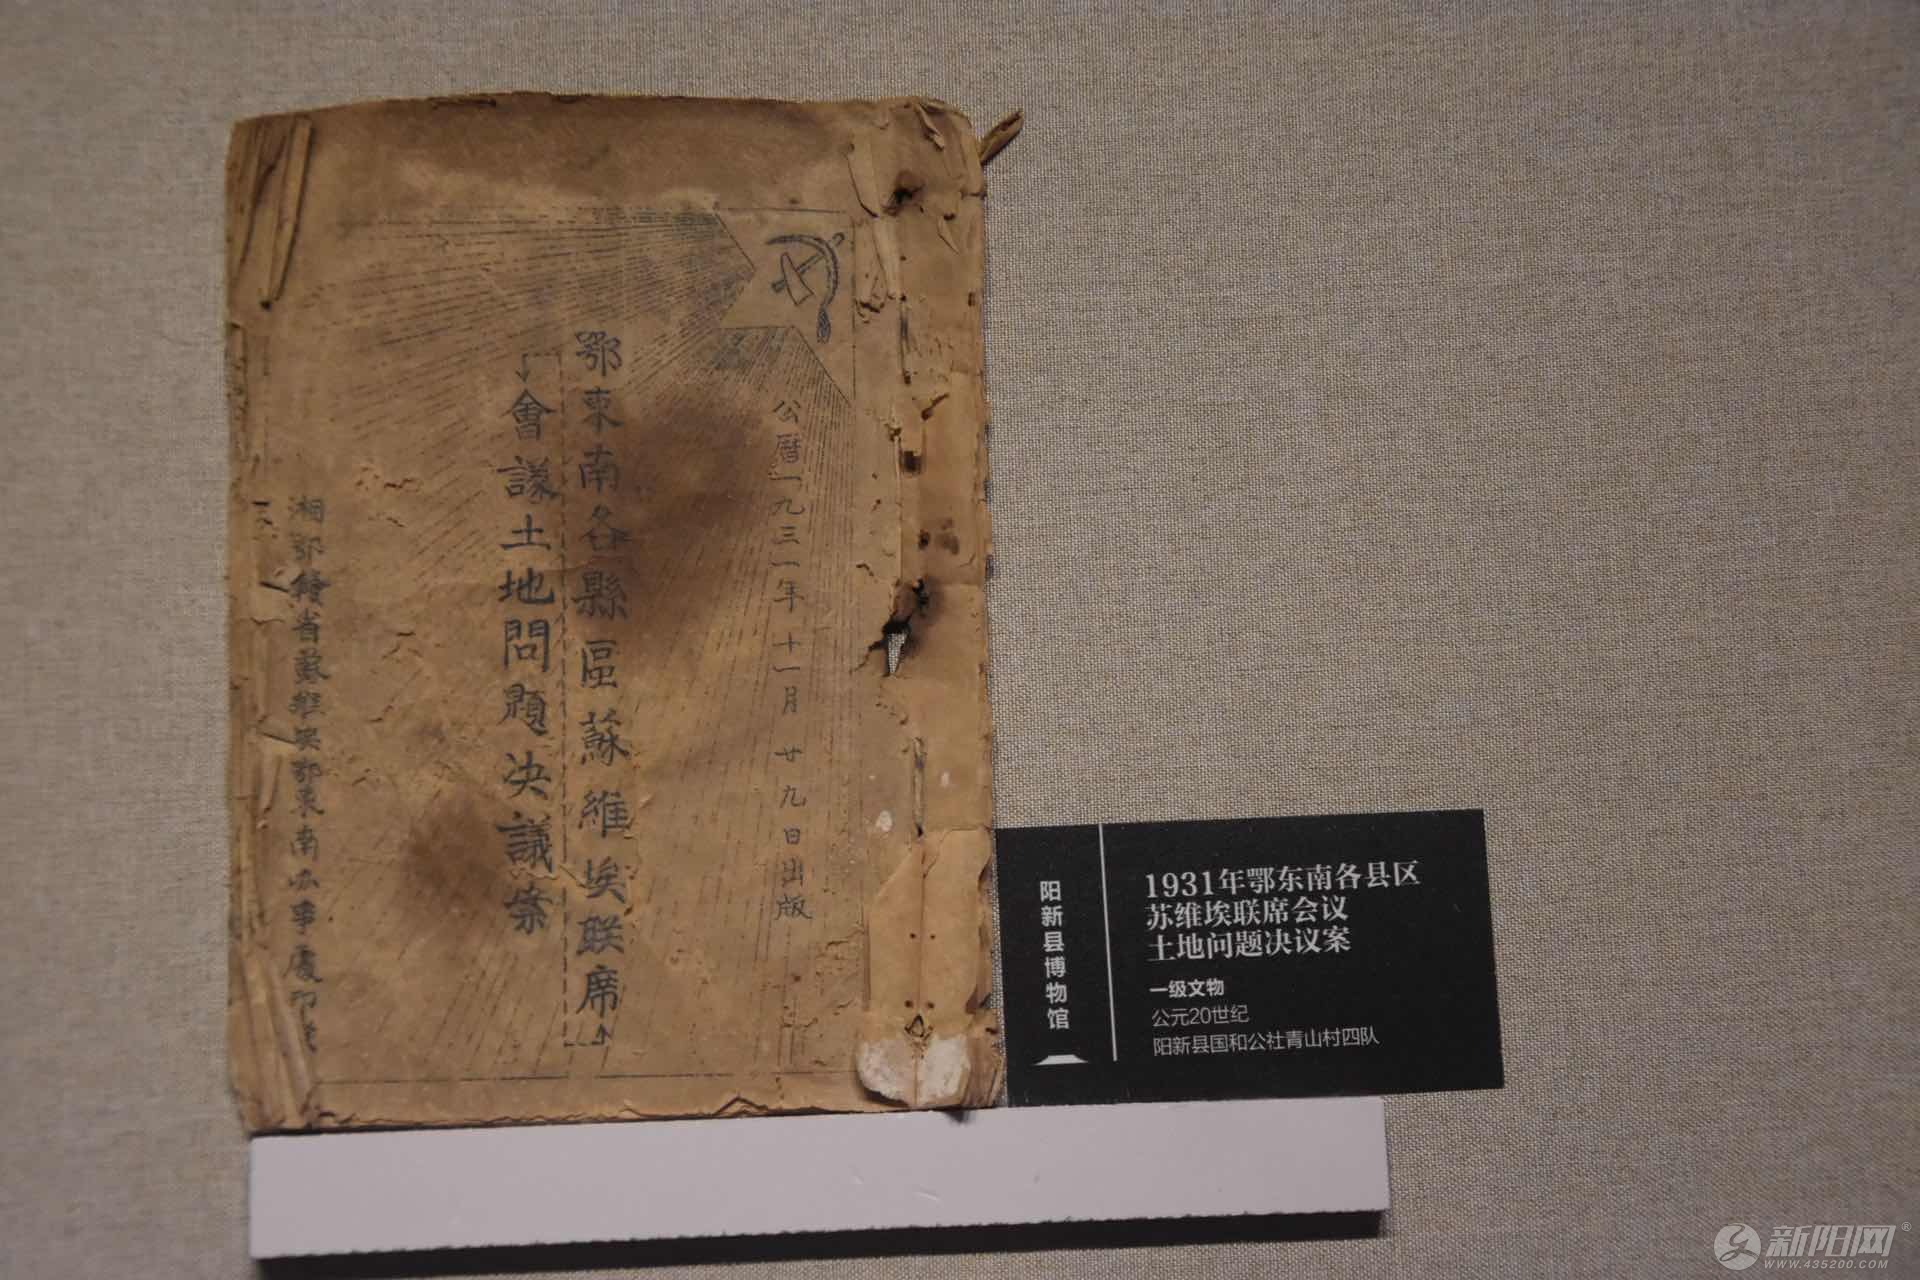 公曆一九三一年十一月廿九日出版
鄂東南各縣區蘇維埃联席
會議土地問題决議案
湘鄂贛省蘇維埃鄂東南办事處印發
阳新县博物馆
1931年鄂东南各县区
苏维埃联席会议
土地问题决议案
一级文物
公元20世纪
阳新县国和公社青山村四队
新阳网®
WWW.435200.COM